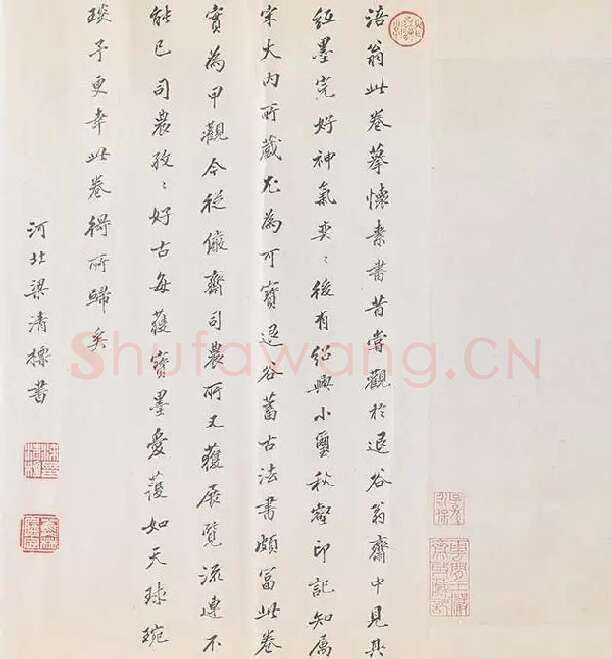 涪翁此卷摹懷素書昔嘗觀於退谷翁齋中見其
紙墨完好神氣奕〻後有紹興小璽秘壑印記知屬
宋大内所藏尤為可寶退谷蓄古法書頗富此卷
實為甲觀今從儼齋司農所又獲展覽流連不
能已司農孜〻好古每獲寶墨愛護如天球琬
琰予更幸此卷得所歸矣
河北梁清標書
Shufawang.CN